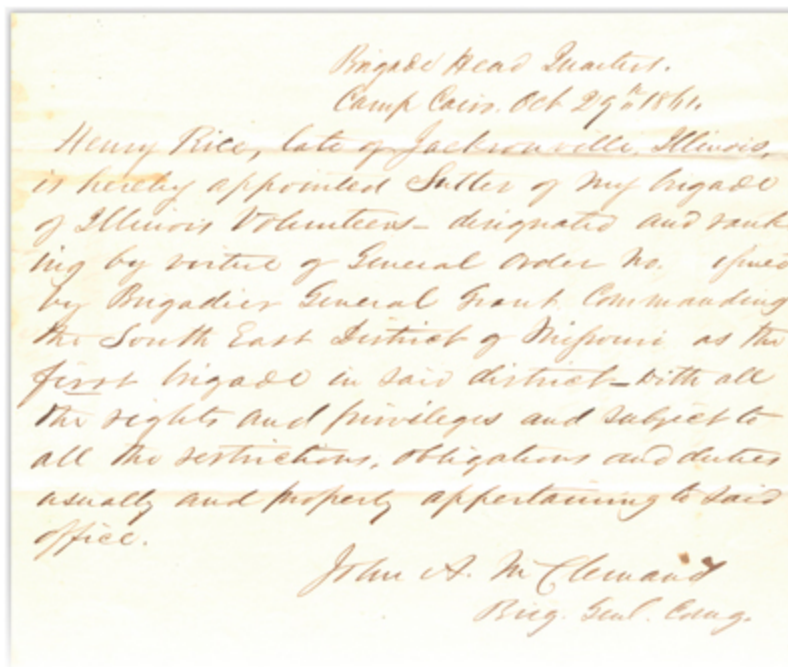 Brigade Head Quarters.
Camp Cairo. Oct 29th 1861.
Henry Rice, late of Jacksonville, Illinois,
is hereby appointed Sutler of my brigade
of Illinois Volunteers_ designated and rank
ing by virtue of General Order No. issued
by Brigadier General Grant Commanding
the South East District of Missouri as the
first brigade in said district_ with all
the rights and privileges and subject to
all the restrictions, obligations and duties
usually and properly appertaining to said
office.
John A. McClernand
Brig. Genl. Comg.